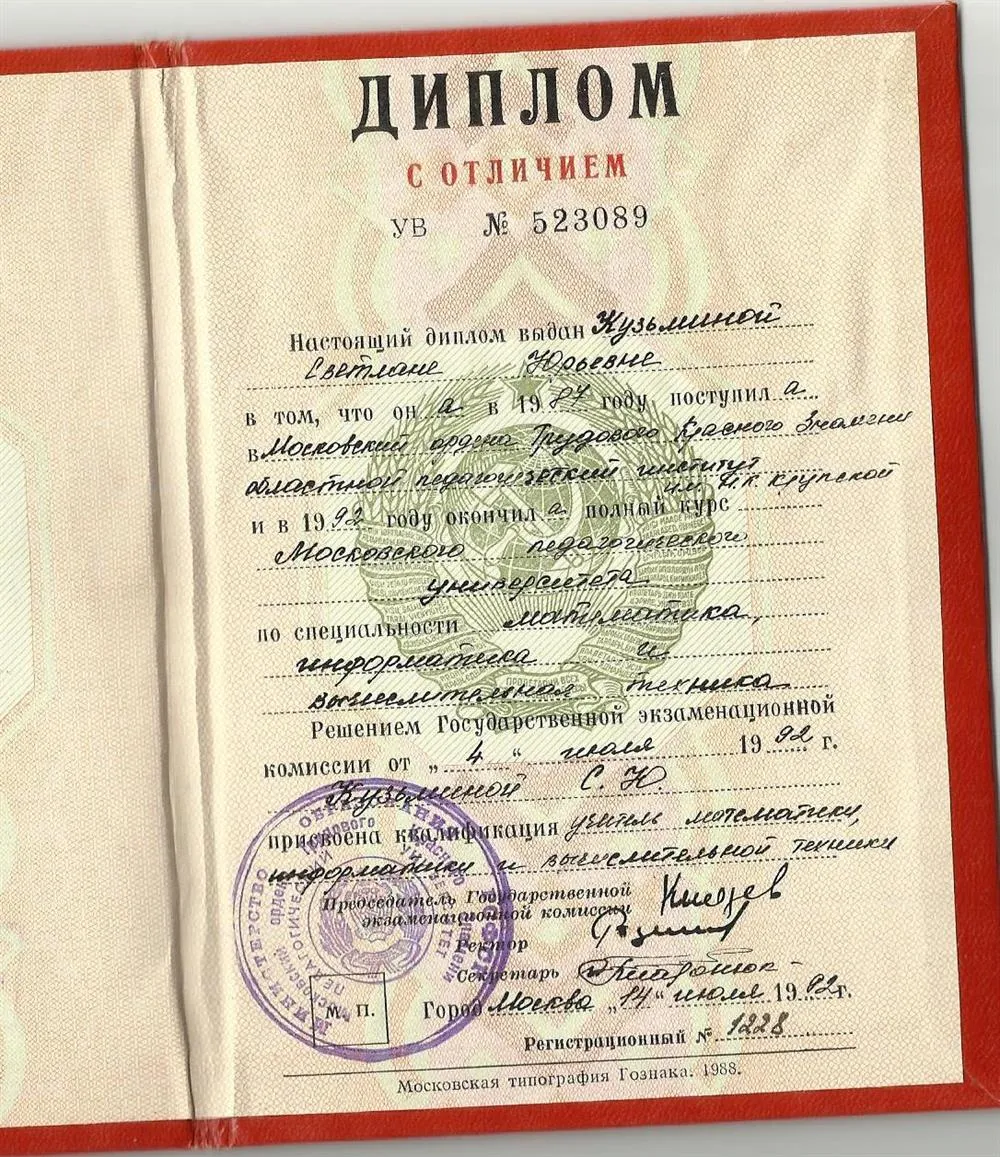 ДИПЛОМ
С ОТЛИЧИЕМ
УВ № 523089
Настоящий диплом выдан Кузьминой
Светлане Юрьевне
в том, что он а в 1987 году поступил а
в Московский ордена Трудового Красного Знамени
областной педагогический институт
им. Н К Крупской
и в 1992 году окончил а полный курс
Московского педагогического
университета
по специальности математика,
информатика и
вычислительная техника
Решением Государственной экзаменационной
комиссии от „ 4 “ июля 1992 г.
Кузьминой С. Ю.
присвоена квалификация учитель математики,
информатики и вычислительной техники
Председатель Государственной
экзаменационной комиссии
Ректор
Секретарь
М. П.
Город Москва „14“ июля 1992г.
Регистрационный № 1228
Московская типография Гознака. 1988.
МИНИСТЕРСТВО ОБРАЗОВАНИЯ РСФСР